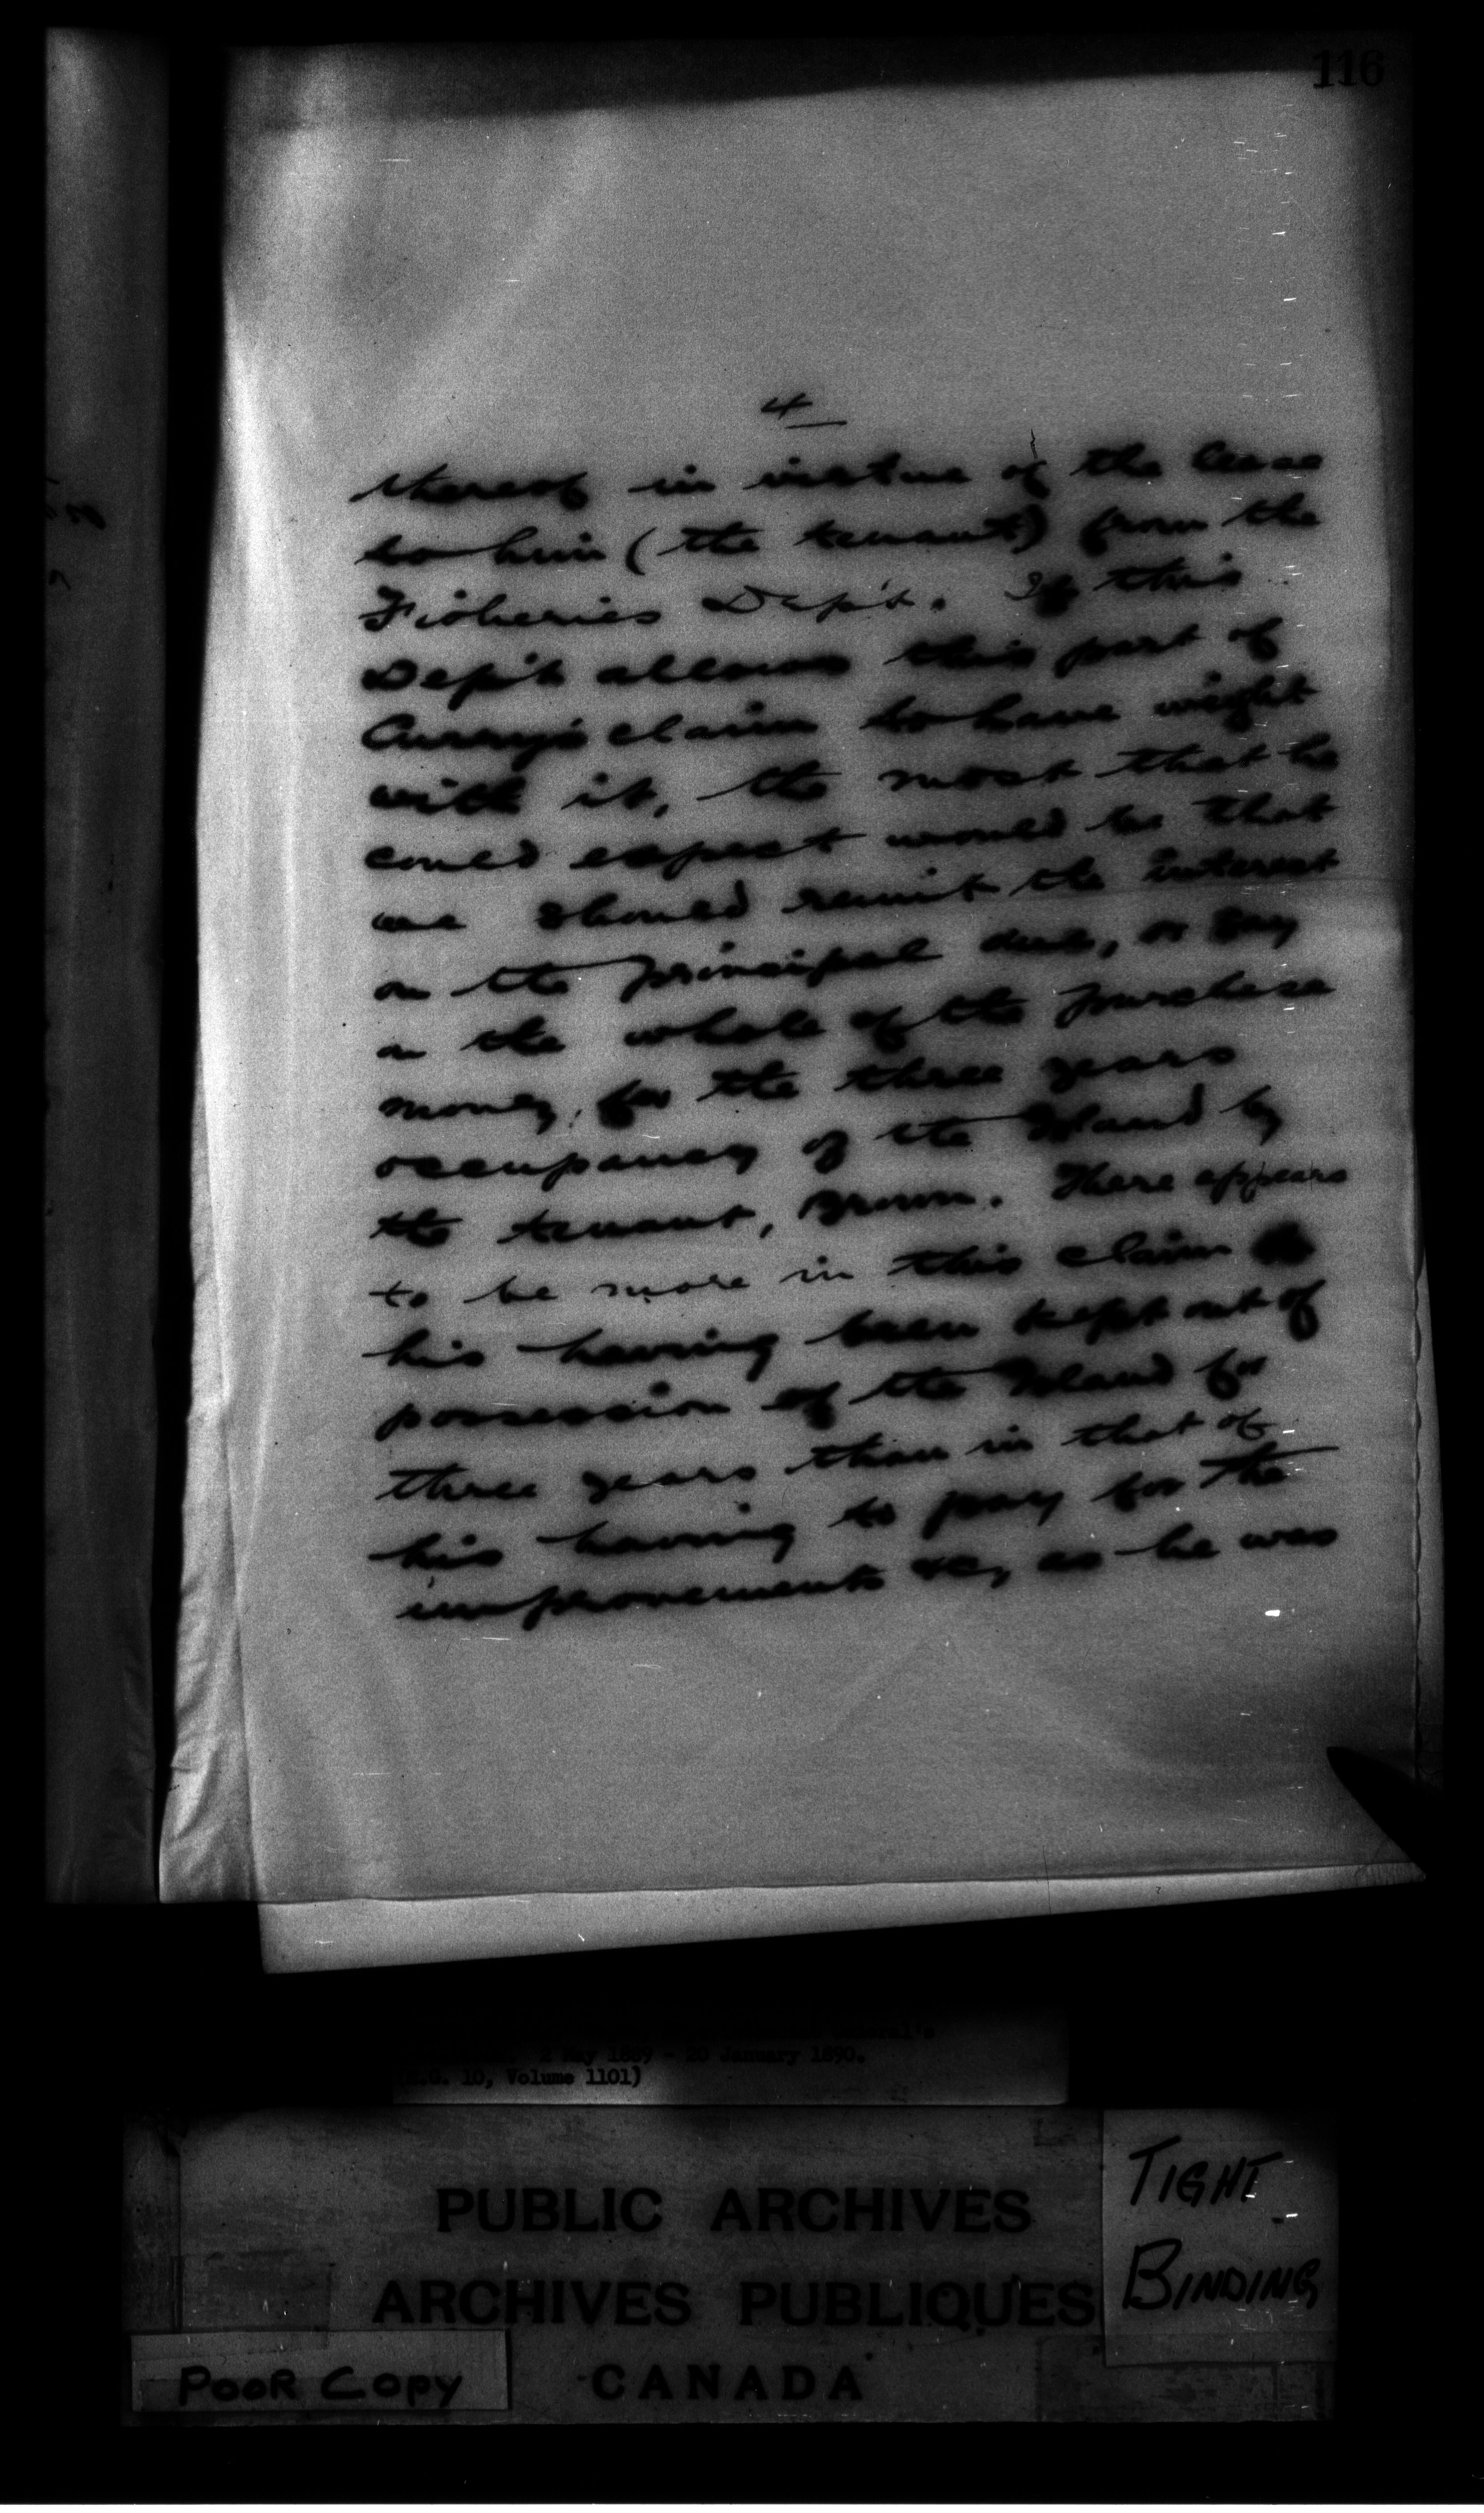 116
4
thereof in virtue of the lease
to him (the tenant) from the
Fisheries Dep't. If this
Dep't allows this part of
Curry's claim to have weight
with it, the most that he
could expect would be that
we should remit the interest
on the principal due, or say
on the whole of the purchase
money, for the three years
occupancy of the Island by
the tenant, Brown. There appears
to be more in this claim
his having been kept out of
possession of the Island for
three years than in that of
his having to pay for the
improvements &c, as he was
General's
2 May 1889 - 20 January 1890.
10, Volume 1101)
PUBLIC ARCHIVES
ARCHIVES PUBLIQUES
CANADA
TIGHT
BINDING
POOR COPY